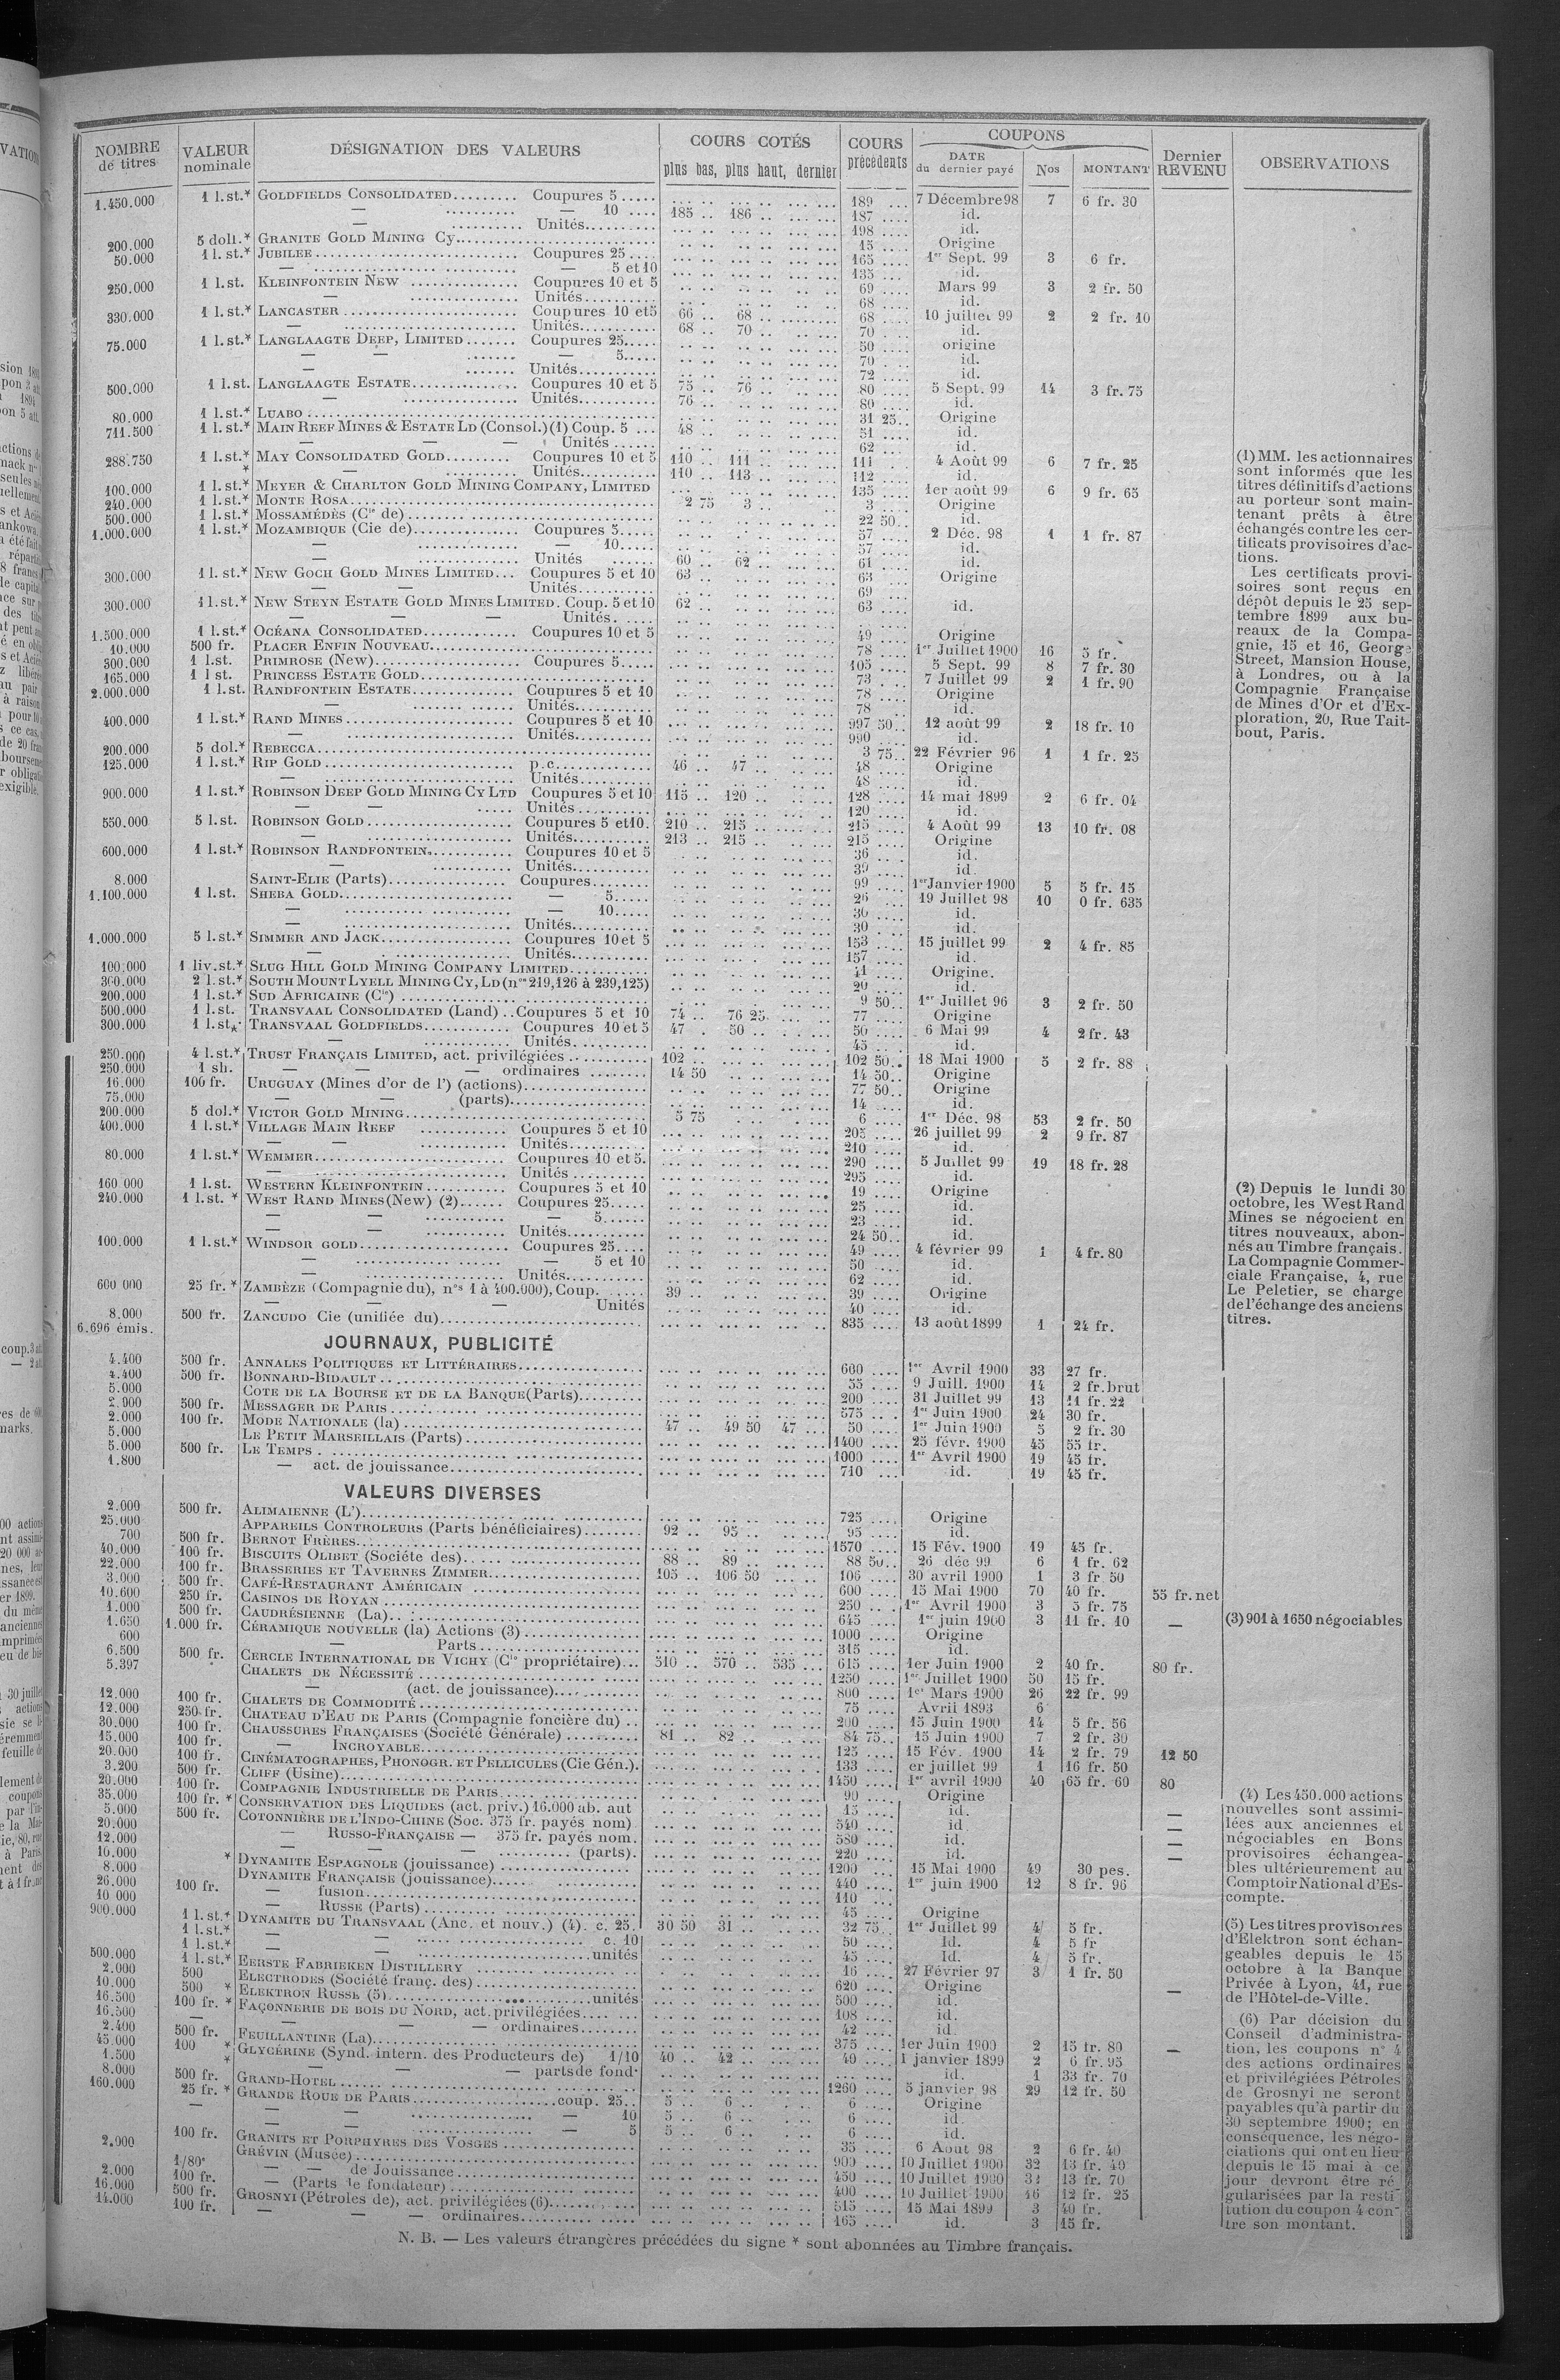 NOMBRE de titres | VALEUR nominale | DÉSIGNATION DES VALEURS | COURS COTÉS plus bas, plus haut, dernier | COURS précédents | COUPONS DATE du dernier payé | Nos | MONTANT | Dernier REVENU | OBSERVATIONS
1.450.000 1 l.st.* GOLDFIELDS CONSOLIDATED Coupures 5 189 7 Décembre 98 7 6 fr. 30
— — 10 185 186 187 id.
— Unités 198 id.
200.000 5 doll.* GRANITE GOLD MINING Cy 15 Origine
50.000 1 l. st.* JUBILEE Coupures 25 165 1er Sept. 99 3 6 fr.
— — 5 et 10 135 id.
250.000 1 l.st. KLEINFONTEIN NEW Coupures 10 et 5 69 Mars 99 3 2 fr. 50
— Unités 68 id.
330.000 1 l.st.* LANCASTER Coupures 10 et 5 66 68 68 10 juillet 99 2 2 fr. 10
— Unités 68 70 70 id.
75.000 1 l.st.* LANGLAAGTE DEEP, LIMITED Coupures 25 50 origine
— — — 5 70 id.
— Unités 72 id.
500.000 1 l.st. LANGLAAGTE ESTATE Coupures 10 et 5 75 76 80 5 Sept. 99 14 3 fr. 75
— Unités 76 80 id.
80.000 1 l.st.* LUABO 31 25 Origine
711.500 1 l.st.* MAIN REEF MINES & ESTATE LD (Consol.) (1) Coup. 5 48 51 id.
— — — Unités 62 id.
288.750 1 l.st.* MAY CONSOLIDATED GOLD Coupures 10 et 5 110 111 111 4 Août 99 6 7 fr. 25
* — Unités 110 113 112 id.
100.000 1 l.st.* MEYER & CHARLTON GOLD MINING COMPANY, LIMITED 135 1er août 99 6 9 fr. 65
240.000 1 l.st.* MONTE ROSA 2 75 3 3 Origine
500.000 1 l.st.* MOSSAMÉDÈS (Cie de) 22 50 id.
1.000.000 1 l.st.* MOZAMBIQUE (Cie de) Coupures 5 57 2 Déc. 98 1 1 fr. 87
— — 10 57 id.
— Unités 60 62 61 id.
300.000 1 l. st.* NEW GOCH GOLD MINES LIMITED Coupures 5 et 10 63 63 Origine
— — Unités 69
300.000 1 l.st.* NEW STEYN ESTATE GOLD MINES LIMITED. Coup. 5 et 10 62 63 id.
— — — Unités
1.500.000 1 l.st.* OCÉANA CONSOLIDATED Coupures 10 et 5 49 Origine
10.000 500 fr. PLACER ENFIN NOUVEAU 78 1er Juillet 1900 16 5 fr.
300.000 1 l.st. PRIMROSE (New) Coupures 5 105 5 Sept. 99 8 7 fr. 30
165.000 1 l st. PRINCESS ESTATE GOLD 73 7 Juillet 99 2 1 fr. 90
2.000.000 1 l.st. RANDFONTEIN ESTATE Coupures 5 et 10 78 Origine
— Unités 78 id.
400.000 1 l.st.* RAND MINES Coupures 5 et 10 997 50 12 août 99 2 18 fr. 10
— Unités 990 id.
200.000 5 dol.* REBECCA 3 75 22 Février 96 1 1 fr. 25
125.000 1 l.st.* RIP GOLD p.c. 46 47 48 Origine
— Unités 48 id.
900.000 1 l.st.* ROBINSON DEEP GOLD MINING CY LTD Coupures 5 et 10 115 120 128 14 mai 1899 2 6 fr. 04
— — Unités 120 id.
550.000 5 l.st. ROBINSON GOLD Coupures 5 et 10. 210 215 215 4 Août 99 13 10 fr. 08
— Unités 213 215 215 Origine
600.000 1 l.st.* ROBINSON RANDFONTEIN Coupures 10 et 5 36 id.
— Unités 39 id.
8.000 SAINT-ELIE (Parts) Coupures 99 1er Janvier 1900 5 5 fr. 15
1.100.000 1 l.st. SHEBA GOLD — 5 26 19 Juillet 98 10 0 fr. 635
— — 10 30 id.
— Unités 30 id.
1.000.000 5 l.st.* SIMMER AND JACK Coupures 10 et 5 153 15 juillet 99 2 4 fr. 85
— Unités 157 id.
100.000 1 liv.st.* SLUG HILL GOLD MINING COMPANY LIMITED 41 Origine.
300.000 2 l.st.* SOUTH MOUNT LYELL MINING CY, LD (nos 219,126 à 239,125) 20 id.
200.000 1 l.st.* SUD AFRICAINE (Cie) 9 50 1er Juillet 96 3 2 fr. 50
500.000 1 l.st. TRANSVAAL CONSOLIDATED (Land) Coupures 5 et 10 74 76 25 77 Origine
300.000 1 l.st* TRANSVAAL GOLDFIELDS Coupures 10 et 5 47 50 50 6 Mai 99 4 2 fr. 43
— Unités 45 id.
250.000 4 l.st.* TRUST FRANÇAIS LIMITED, act. privilégiées 102 102 50 18 Mai 1900 5 2 fr. 88
250.000 1 sh. — — — ordinaires 14 50 14 50 Origine
16.000 100 fr. URUGUAY (Mines d'or de l') (actions) 77 50 Origine
75.000 — — (parts) 14 id.
200.000 5 dol.* VICTOR GOLD MINING 5 75 6 1er Déc. 98 53 2 fr. 50
400.000 1 l.st.* VILLAGE MAIN REEF Coupures 5 et 10 205 26 juillet 99 2 9 fr. 87
— — Unités 210 id.
80.000 1 l.st.* WEMMER Coupures 10 et 5. 290 5 Juillet 99 19 18 fr. 28
— Unités 295 id.
160 000 1 l.st. WESTERN KLEINFONTEIN Coupures 5 et 10 19 Origine
240.000 1 l.st. * WEST RAND MINES (New) (2) Coupures 25 25 id.
— — — 5 23 id.
— — Unités 24 50 id.
100.000 1 l.st.* WINDSOR GOLD Coupures 25 49 4 février 99 1 4 fr. 80
— — 5 et 10 50 id.
— Unités 62 id.
600 000 25 fr. * ZAMBÈZE (Compagnie du), nos 1 à 400.000), Coup. 39 39 Origine
— — — Unités 40 id.
8.000 500 fr. ZANCUDO Cie (unifiée du) 835 13 août 1899 1 24 fr.
6.696 émis.
JOURNAUX, PUBLICITÉ
4.400 500 fr. ANNALES POLITIQUES ET LITTÉRAIRES 600 1er Avril 1900 33 27 fr.
4.400 500 fr. BONNARD-BIDAULT 55 9 Juill. 1900 14 2 fr. brut
5.000 COTE DE LA BOURSE ET DE LA BANQUE (Parts) 200 31 Juillet 99 13 11 fr. 22
2.900 500 fr. MESSAGER DE PARIS 575 1er Juin 1900 24 30 fr.
2.000 100 fr. MODE NATIONALE (la) 47 49 50 47 50 1er Juin 1900 5 2 fr. 30
5.000 LE PETIT MARSEILLAIS (Parts) 1400 25 févr. 1900 45 55 fr.
5.000 500 fr. LE TEMPS 1000 1er Avril 1900 19 45 fr.
1.800 — act. de jouissance 710 id. 19 45 fr.
VALEURS DIVERSES
2.000 500 fr. ALIMAIENNE (L') 725 Origine
25.000 APPAREILS CONTROLEURS (Parts bénéficiaires) 92 95 95 id.
700 500 fr. BERNOT FRÈRES 1570 15 Fév. 1900 19 45 fr.
40.000 100 fr. BISCUITS OLIBET (Société des) 88 89 88 50 26 déc 99 6 1 fr. 62
22.000 100 fr. BRASSERIES ET TAVERNES ZIMMER 105 106 50 106 30 avril 1900 1 3 fr 50
3.000 500 fr. CAFÉ-RESTAURANT AMÉRICAIN 600 15 Mai 1900 70 40 fr. 55 fr. net
10.600 250 fr. CASINOS DE ROYAN 250 1er Avril 1900 3 5 fr. 75
1.000 500 fr. CAUDRÉSIENNE (La) 645 1er juin 1900 3 11 fr. 10 —
1.650 1.000 fr. CÉRAMIQUE NOUVELLE (la) Actions (3) 1000 Origine
600 — Parts 315 id.
6.500 500 fr. CERCLE INTERNATIONAL DE VICHY (Cie propriétaire) 510 570 535 615 1er Juin 1900 2 40 fr. 80 fr.
5.397 CHALETS DE NÉCESSITÉ 1250 1er Juillet 1900 50 15 fr.
— (act. de jouissance) 800 1er Mars 1900 26 22 fr. 99
12.000 100 fr. CHALETS DE COMMODITÉ 75 Avril 1893 6
12.000 250 fr. CHATEAU D'EAU DE PARIS (Compagnie foncière du) 200 15 Juin 1900 14 5 fr. 56
30.000 100 fr. CHAUSSURES FRANÇAISES (Société Générale) 81 82 84 75 15 Juin 1900 7 2 fr. 30
15.000 100 fr. — INCROYABLE 125 15 Fév. 1900 14 2 fr. 79 12 50
20.000 100 fr. CINÉMATOGRAPHES, PHONOGR. ET PELLICULES (Cie Gén.). 133 er juillet 99 1 16 fr. 50
3.200 500 fr. CLIFF (Usine) 1450 1er avril 1900 40 65 fr. 60 80
20.000 100 fr. COMPAGNIE INDUSTRIELLE DE PARIS 90 Origine
35.000 100 fr. * CONSERVATION DES LIQUIDES (act. priv.) 16.000 ab. aut 15 id.
5.000 500 fr. COTONNIÈRE DE L'INDO-CHINE (Soc. 375 fr. payés nom) 540 id —
20.000 — RUSSO-FRANÇAISE — 375 fr. payés nom. 580 id. —
12.000 — — — (parts). 220 id. —
10.000 * DYNAMITE ESPAGNOLE (jouissance) 1200 15 Mai 1900 49 30 pes.
8.000 DYNAMITE FRANÇAISE (jouissance) 440 1er juin 1900 12 8 fr. 96
26.000 100 fr. — fusion 110
10 000 — RUSSE (Parts) 45 Origine
900.000 1 l.st.* DYNAMITE DU TRANSVAAL (Anc. et nouv.) (4). c. 25. 30 50 31 32 75 1er Juillet 99 4 5 fr.
1 l.st.* — — c. 10 50 Id. 4 5 fr
1 l.st.* — — unités 45 Id. 4 5 fr.
500.000 1 l.st.* EERSTE FABRIEKEN DISTILLERY 16 27 Février 97 3 1 fr. 50
2.000 500 ELECTRODES (Société franç. des) 620 Origine
10.000 500 * ELEKTRON RUSSE (5) unités 500 id. —
16.500 100 fr. * FAÇONNERIE DE BOIS DU NORD, act. privilégiées 108 id.
16.500 — — — — ordinaires 42 id.
2.400 500 fr. FEUILLANTINE (La) 375 1er Juin 1900 2 15 fr. 80 —
45.000 100 * GLYCÉRINE (Synd. intern. des Producteurs de) 1/10 40 42 40 1 janvier 1899 2 6 fr. 95
1.500 * — — — parts de fond. id. 1 33 fr. 70
8.000 500 fr. GRAND-HOTEL 1260 5 janvier 98 29 12 fr. 50
160.000 25 fr. * GRANDE ROUE DE PARIS coup. 25 5 6 6 Origine
— — — — 10 5 6 6 id.
— — — 5 5 6 6 id.
2.900 100 fr. GRANITS ET PORPHYRES DES VOSGES 35 6 Aout 98 2 6 fr. 40
1/80e GRÉVIN (Musée) 900 10 Juillet 1900 32 13 fr. 40
2.000 100 fr. — — de Jouissance 450 10 Juillet 1900 31 13 fr. 70
16.000 500 fr. — (Parts de fondateur) 400 10 Juillet 1900 16 12 fr. 25
14.000 100 fr. GROSNYI (Pétroles de), act. privilégiées (6) 515 15 Mai 1899 3 40 fr.
— — ordinaires 165 id. 3 15 fr.
N. B. — Les valeurs étrangères précédées du signe * sont abonnées au Timbre français.
(1) MM. les actionnaires
sont informés que les
titres définitifs d'actions
au porteur sont main-
tenant prêts à être
échangés contre les cer-
tificats provisoires d'ac-
tions.
Les certificats provi-
soires sont reçus en
dépôt depuis le 25 sep-
tembre 1899 aux bu-
reaux de la Compa-
gnie, 15 et 16, George
Street, Mansion House,
à Londres, ou à la
Compagnie Française
de Mines d'Or et d'Ex-
ploration, 20, Rue Tait-
bout, Paris.
(2) Depuis le lundi 30
octobre, les West Rand
Mines se négocient en
titres nouveaux, abon-
nés au Timbre français.
La Compagnie Commer-
ciale Française, 4, rue
Le Peletier, se charge
de l'échange des anciens
titres.
(3) 901 à 1650 négociables
(4) Les 450.000 actions
nouvelles sont assimi-
lées aux anciennes et
négociables en Bons
provisoires échangea-
bles ultérieurement au
Comptoir National d'Es-
compte.
(5) Les titres provisoires
d'Elektron sont échan-
geables depuis le 15
octobre à la Banque
Privée à Lyon, 41, rue
de l'Hôtel-de-Ville.
(6) Par décision du
Conseil d'administra-
tion, les coupons n° 4
des actions ordinaires
et privilégiées Pétroles
de Grosnyi ne seront
payables qu'à partir du
30 septembre 1900; en
conséquence, les négo-
ciations qui ont eu lieu
depuis le 15 mai à ce
jour devront être ré
gularisées par la resti-
tution du coupon 4 con-
tre son montant.